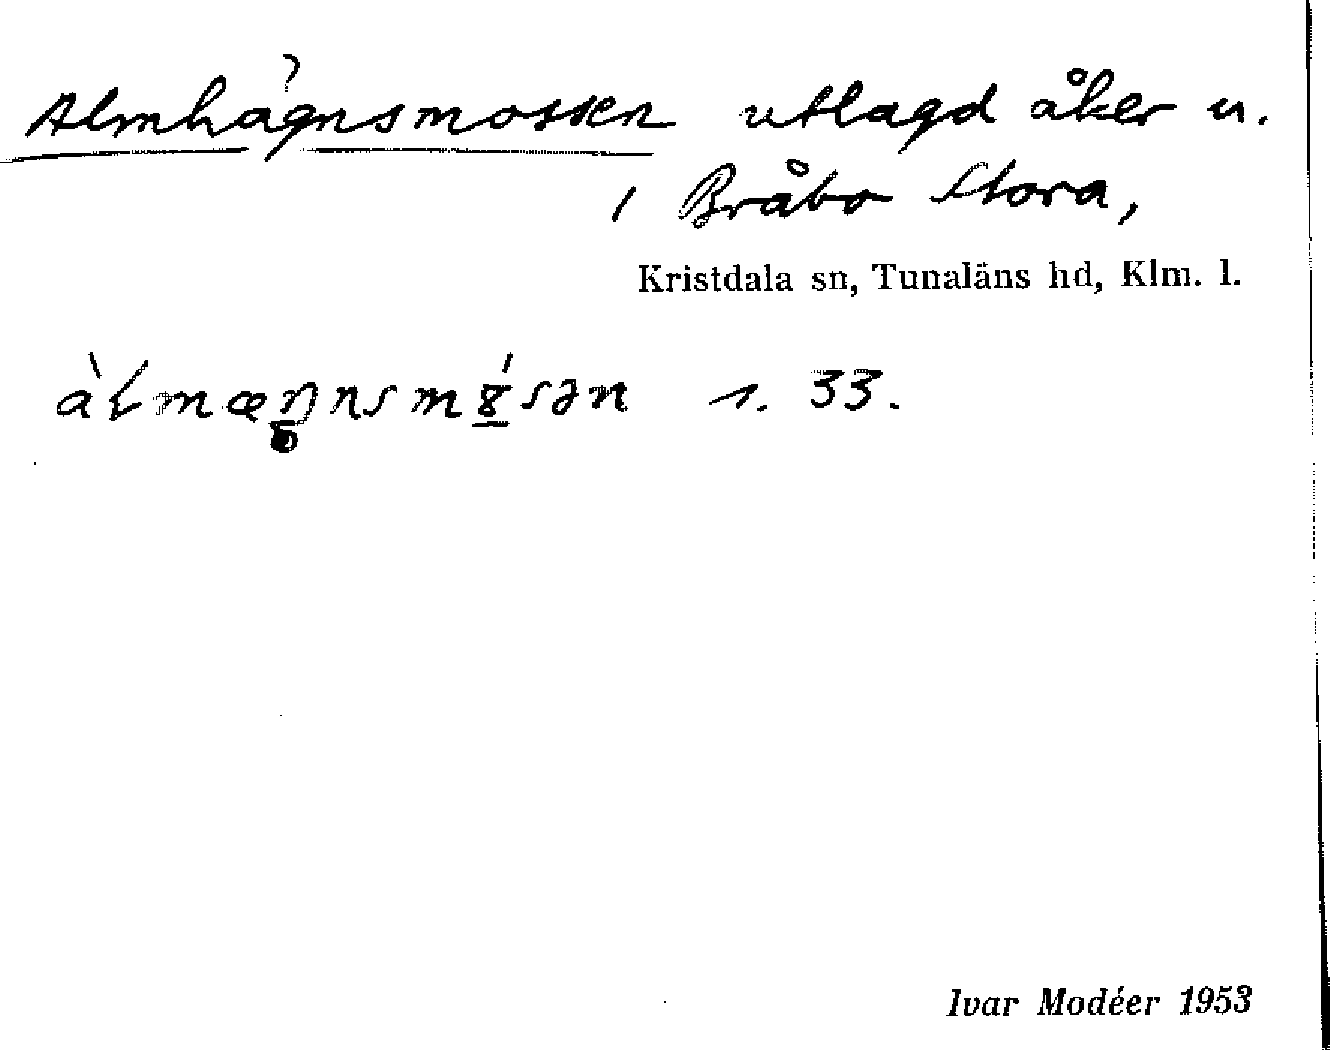 ?
Almhagnsmossen utlagd åker u.
i Bråbo Stora,
Kristdala sn, Tunaläns hd, Klm. l.
s. 33.
Ivar Modéer 1953